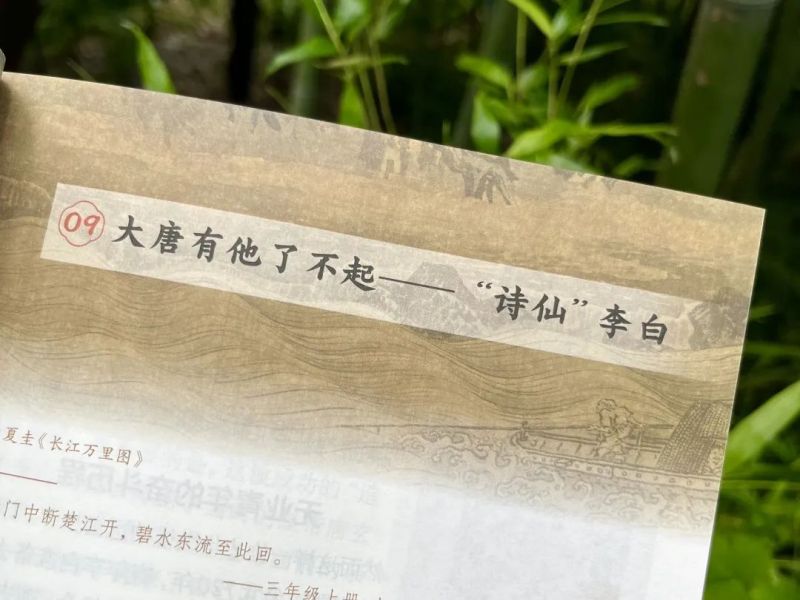 09 大唐有他了不起——“诗仙”李白
夏圭《长江万里图》
门中断楚江开，碧水东流至此回。
——三年级上册
无业青年的奋斗历程